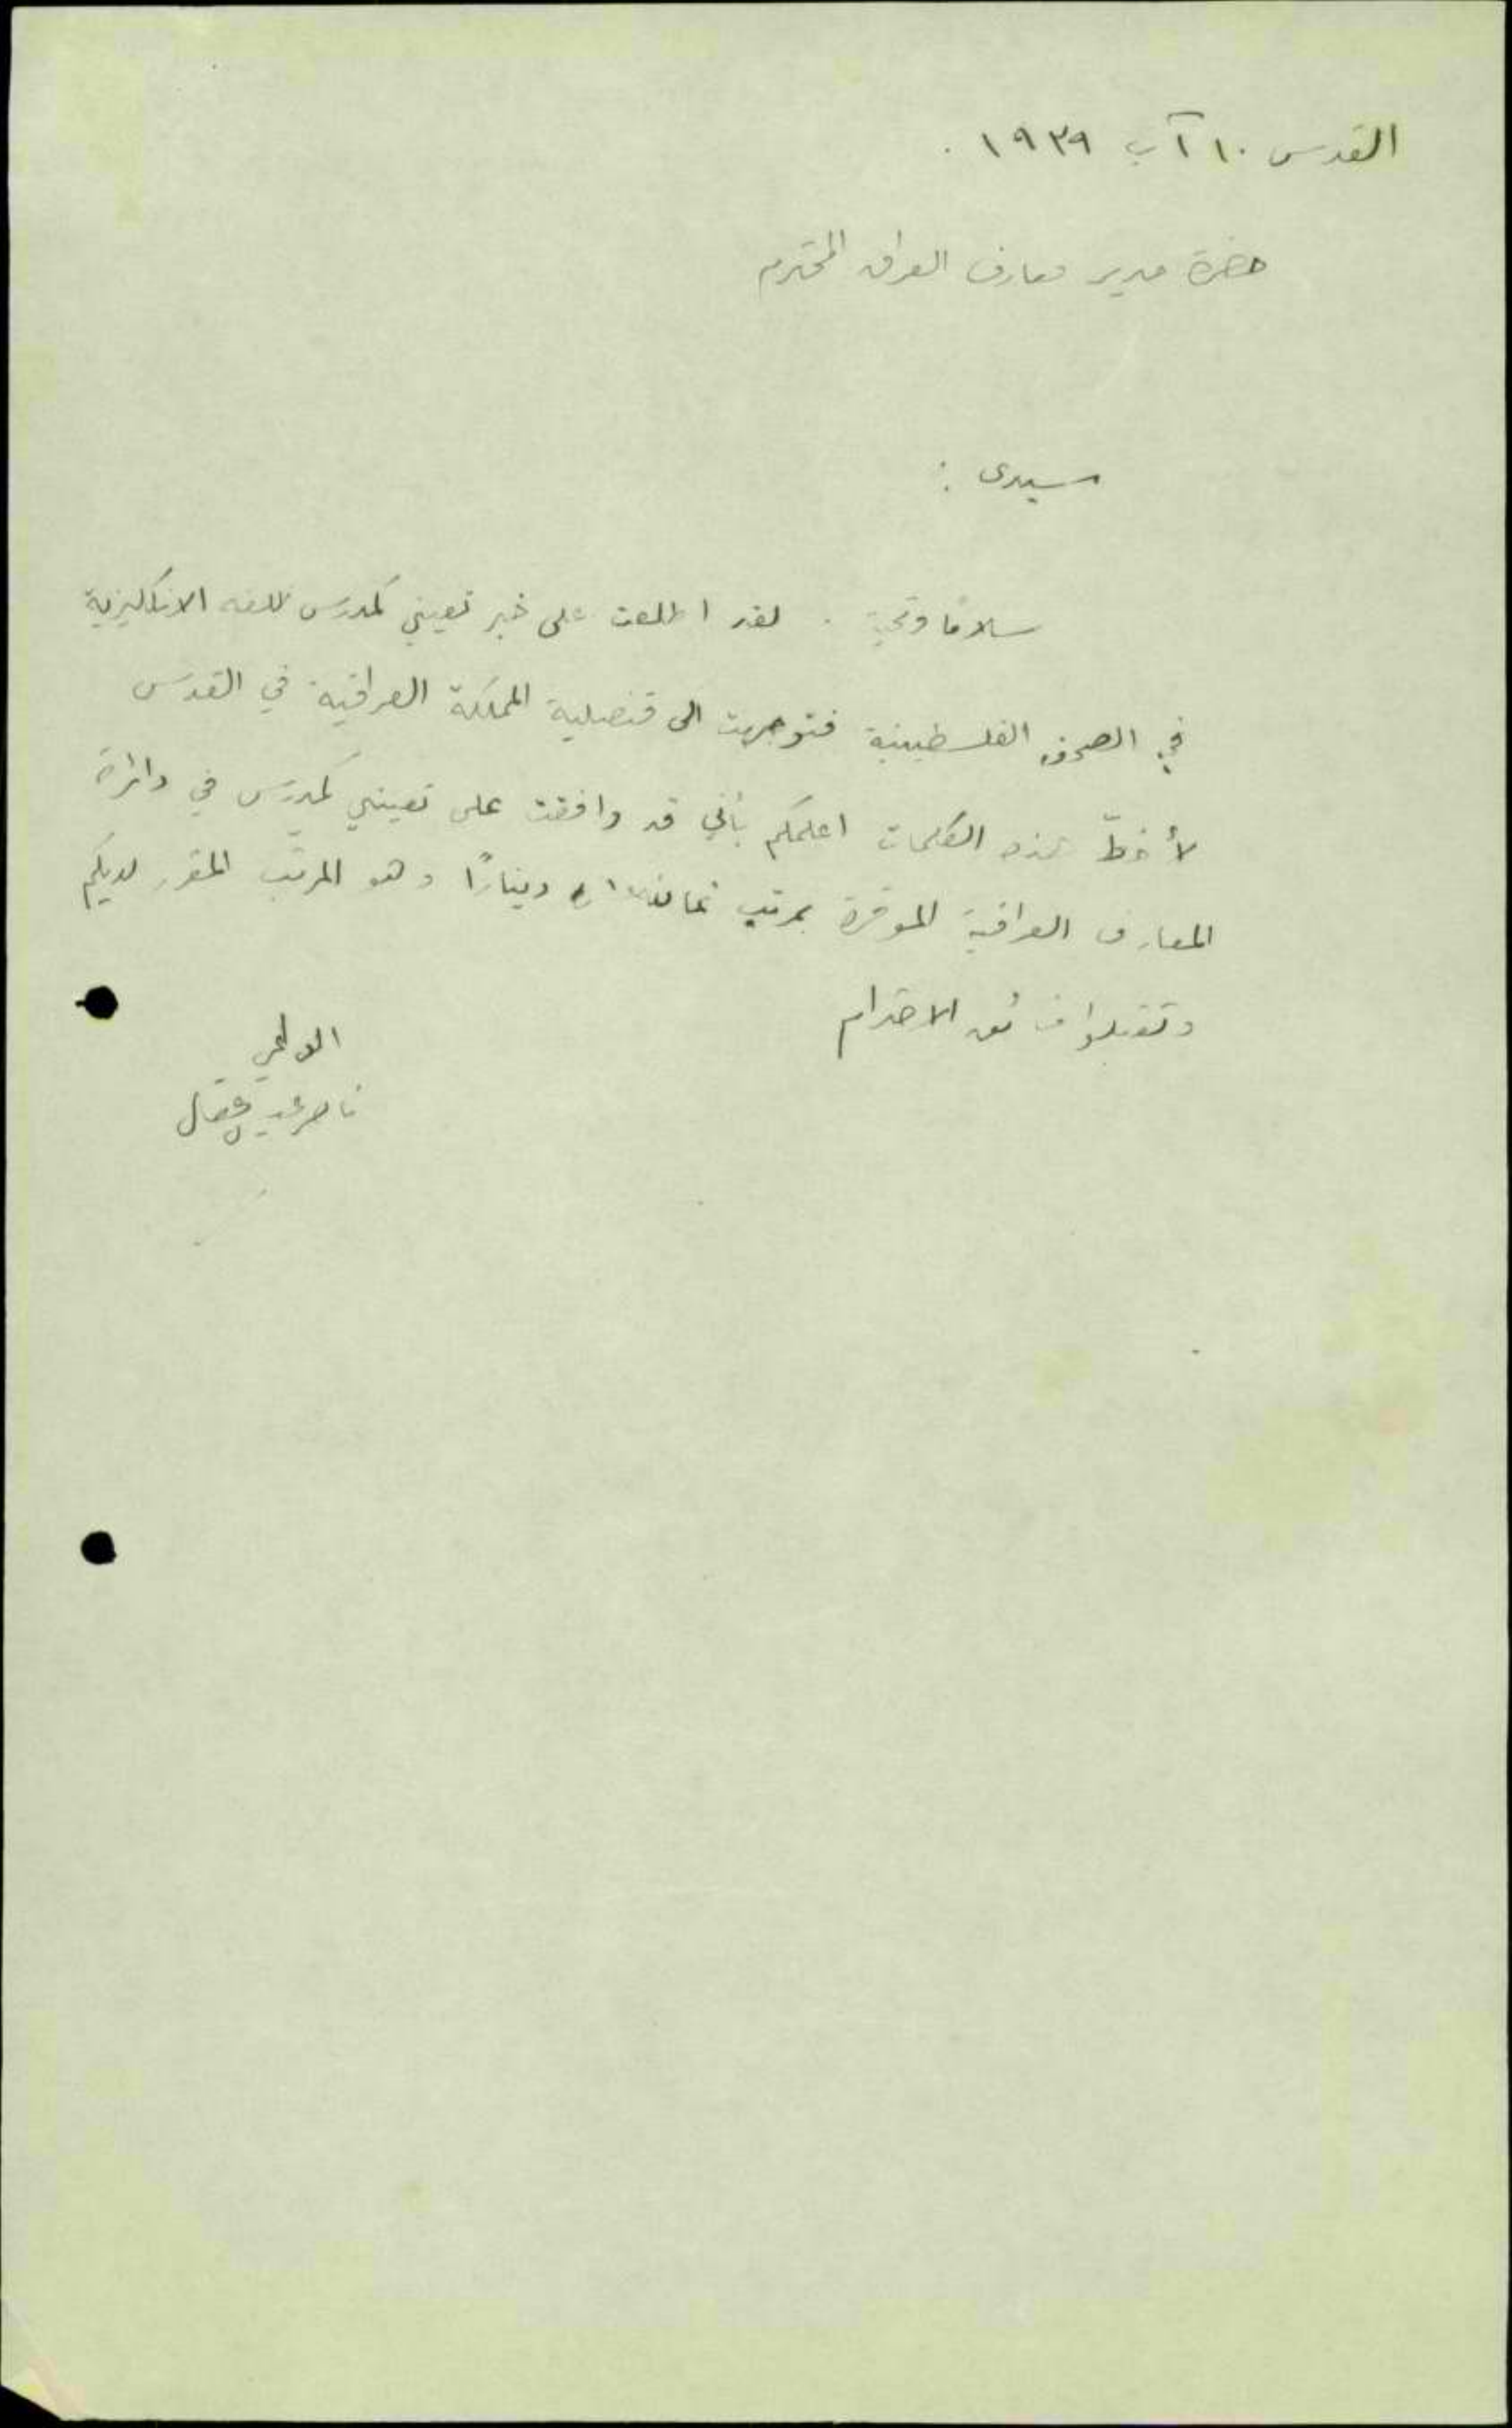 القدس ١٠ آب ١٩٣٩ .
حضرة مدير معارف العراق المحترم
سيدى :
سلامًا وتحية . لقد اطلعت على خبر تعييني كمدرس للغه الانكليزية
في الصحف الفلسطينية فتوجهت الى قنصلية المملكة العراقية في القدس
لأخطّ هذه الكلمات اعلمكم بأني قد وافقت على تعييني كمدرس في دائرة
المعارف العراقية الموقرة بمرتب دينارًا وهو المرتب المقرر لديكم
وتقبلوا فائق الاحترام
ناصر